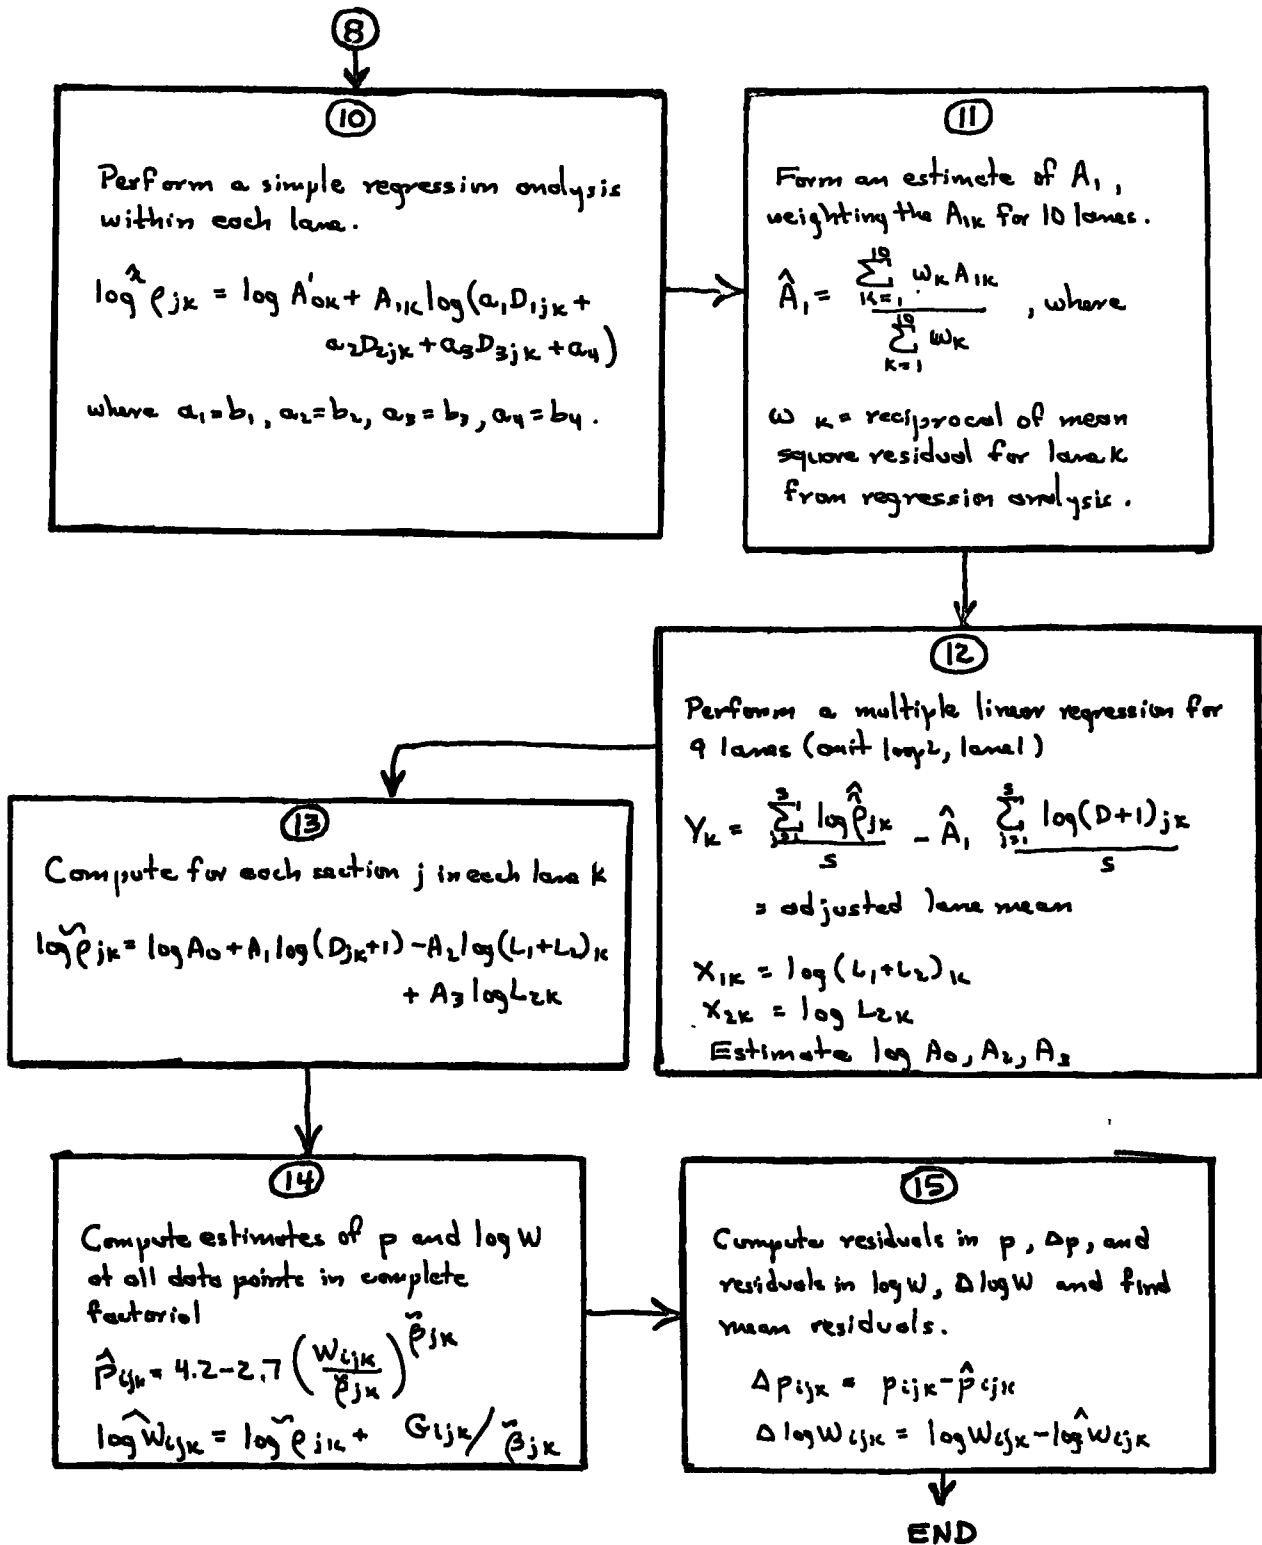 8
10
Perform a simple regression analysis
within each lane.
log ρ̂jk = log A'0k + A1k log(a1D1jk +
a2D2jk + a3D3jk + a4)
where a1=b1, a2=b2, a3=b3, a4=b4.
11
Form an estimate of A1,
weighting the A1k for 10 lanes.
Â1 = ∑(k=1 to 10) ωk A1k / ∑(k=1 to 10) ωk , where
ωk = reciprocal of mean
square residual for lane k
from regression analysis.
12
Perform a multiple linear regression for
9 lanes (omit loop2, lane1)
Yk = ∑(j=1 to s) log ρ̂jk / s - Â1 ∑(j=1 to s) log(D+1)jk / s
= adjusted lane mean
X1k = log(L1+L2)k
X2k = log L2k
Estimate log A0, A2, A3
13
Compute for each section j in each lane k
log ρ̃jk = log A0 + A1 log(Djk+1) - A2 log(L1+L2)k
+ A3 log L2k
14
Compute estimates of p and log W
at all data points in complete
factorial
p̂ijk = 4.2-2.7 (Wijk / ρ̃jk)^β̃jk
log Ŵijk = log ρ̃jk + Gijk/β̃jk
15
Compute residuals in p, Δp, and
residuals in log W, Δ log W and find
mean residuals.
Δpijk = pijk - p̂ijk
Δ log Wijk = log Wijk - log Ŵijk
END